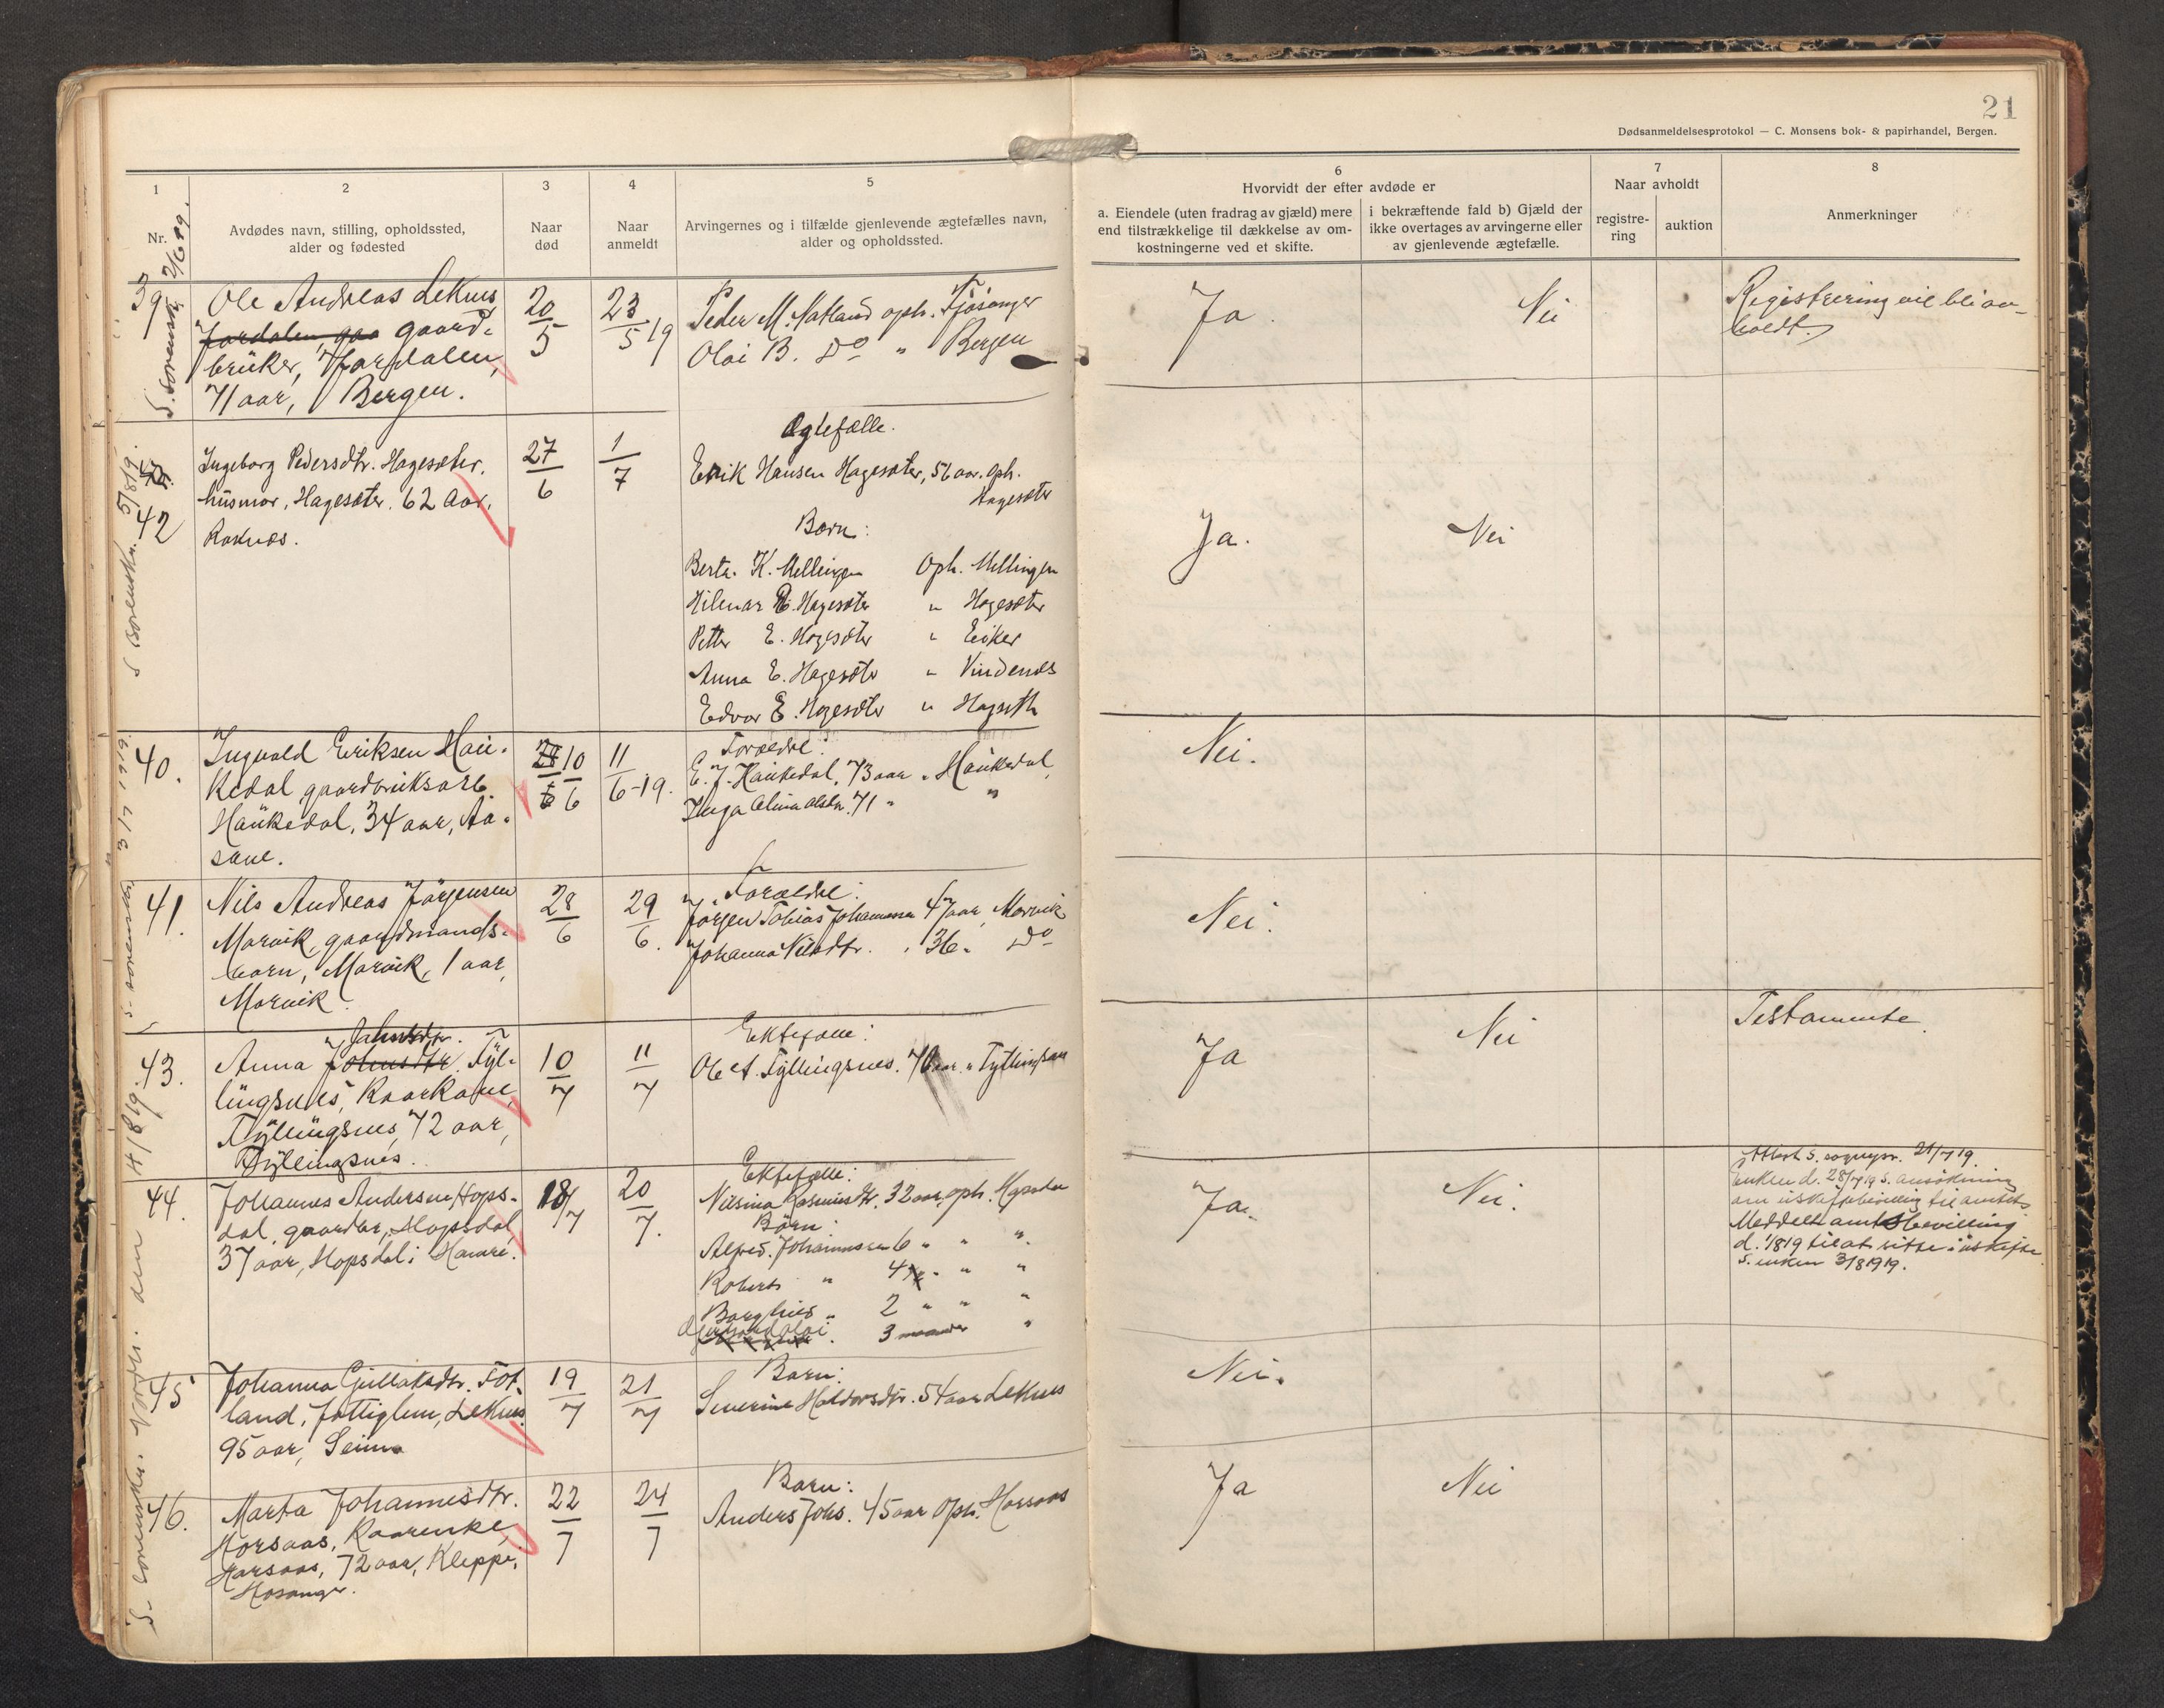 21
Dødsanmeldelsesprotokol — C. Monsens bok- & papirhandel, Bergen.
1
Nr.
2
Avdødes navn, stilling, opholdssted,
alder og fødested
3
Naar
død
4
Naar
anmeldt
5
Arvingernes og i tilfælde gjenlevende ægtefælles navn,
alder og opholdssted.
6
Hvorvidt der efter avdøde er
a. Eiendele (uten fradrag av gjæld) mere
end tilstrækkelige til dækkelse av om-
kostningerne ved et skifte.
i bekræftende fald b) Gjæld der
ikke overtages av arvingerne eller
av gjenlevende ægtefælle.
7
Naar avholdt
registre-
ring
auktion
8
Anmerkninger
39
Ole Andreas Leknes
Jordalen, gaa gaard-
brüker, Jordalen,
71 aar, Bergen.
20/5
23/5 19
Peder M. Matland oph. Fjøsanger
Olai B. Do " Bergen
Ja.
Nei
Registrering vil bli av-
holdt.
42
Ingeborg Pedersdtr. Hagesæter,
húsmor, Hagesæter. 62 Aar.
Roknes.
27/6
1/7
Ægtefælle.
Erik Hansen Hagesæter, 56 aar. Oph.
Hagesæter
Børn:
Berta K. Mellingen Oph. Mellingen
Hilmar E. Hagesæter " Hagesæter
Petter E. Hagesæter " Eiker
Anna E. Hagesæter " Vindenes
Edvar E. Hagesæter " Hagesæter
Ja.
Nei
40.
Ingvald Eriksen Haü-
kedal, gaardbruksarb.
Haükedal, 34 aar, Aa-
sane.
10/6
11/6-19.
Forældre:
E. J. Haükedal, 73 aar " Haükedal,
Inga Olina Olsdtr. 71 " "
Nei.
41.
Nils Andreas Jørgensen
Morvik, gaardmands-
barn, Morvik, 1 aar,
Morvik
28/6
29/6.
Forældre:
Jørgen Tobias Johannesen 47 aar, Morvik
Johanna Nilsdtr. " 36 " Do
Nei.
43.
Jahnsdtr.
Anna Johnsdtr. Tyl-
lüngsnes, Kaarkone,
Tyllingsnes, 72 aar,
Tyllingsnes.
10/7
11/7
Ektefælle:
Ole A. Tyllingsnes. 70 aar. " Tyllingsnes
Ja
Nei
Testamente.
44.
Johannes Andersen Hops-
dal, gaardbr., Hopsdal,
37 aar, Hopsdal i Hamre.
18/7
20/7.
Ektefælle:
Nilsina Rasmusdtr. 32 aar, oph. Hopsdal
Børn:
Alfred Johannessen 6 " " "
Robert " 4 " " "
Borghild " 2 " " "
Olai. 3 maaneder "
Ja.
Nei.
Attest s. sognepr. 21/7 19.
Enken d. 28/7 19 s. ansøkning
om uskiftebevilling til amtet.
Meddelt amtsbevilling
d. 1/8 19 til at sitte i uskifte
s. enken 3/8 1919.
45
Johanna Gullaksdtr. Fot-
land, fattiglem, Leknes
95 aar, Seim
19/7
21/7
Barn:
Severine Haldorsdtr. 54 aar Leknes
Nei.
46.
Marta Johannesdtr.
Horsaas, Kaarenke,
Horsaas, 72 aar, Kleppe,
Hosanger.
22/7
24/7
Barn:
Anders Johs. 45 aar Oph. Horsaas
Ja
Nei